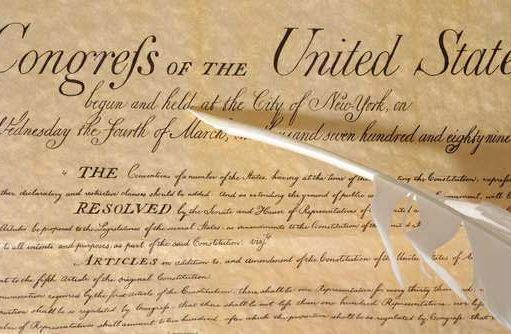 Congreſs OF THE United State
begun and held at the City of New-York, on
Wednesday the Fourth of March, thousand seven hundred and eighty nine
THE Conventions of a number of the States, having at the time of their adopting the Constitution, expressed
declaratory and restrictive clauses should be added And as extending the ground of public
RESOLVED by the Senate and House of Representatives of the
be proposed to the Legislatures of the several States, as amendments to the Constitution of the
to all intents and purposes, as part of the said Constitution. viz.
ARTICLES in addition to, and Amendment of the Constitution of the United States of
to the fifth Article of the original Constitution
required by the first Article of the Constitution, there shall be one Representative for every thirty thousand,
shall be so regulated by Congress, that there shall be not less than one hundred Representatives, nor
of Representatives shall amount to two hundred, after which the proportion shall be so regulated by Congress,